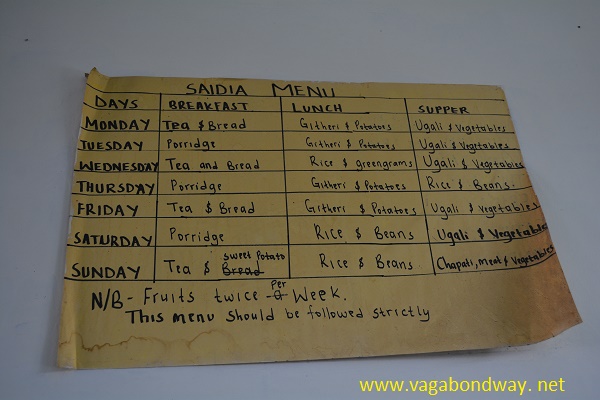 SAIDIA MENU
DAYS BREAKFAST LUNCH SUPPER
MONDAY Tea & Bread Githeri & Potatoes Ugali & Vegetables
TUESDAY Porridge Githeri & Potatoes Ugali & Vegetables
WEDNESDAY Tea and Bread Rice & greengrams Ugali & Vegetables
THURSDAY Porridge Githeri & Potatoes Rice & Beans.
FRIDAY Tea & Bread Githeri & Potatoes Ugali & Vegetables
SATURDAY Porridge Rice & Beans Ugali & Vegetable
SUNDAY Tea & sweet potato Bread Rice & Beans Chapati, meat & Vegetables
N/B- Fruits twice a Per Week.
This menu should be followed strictly
www.vagabondway.net